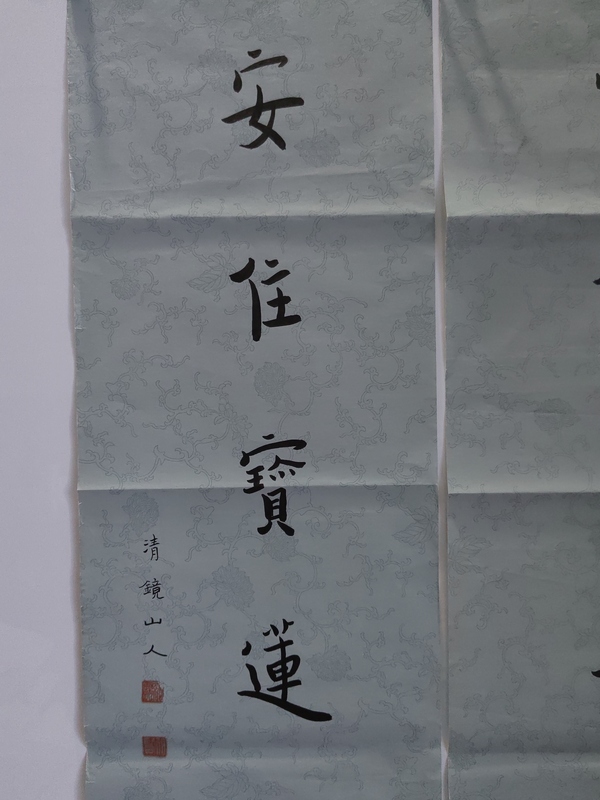 安住寶蓮
清鏡山人